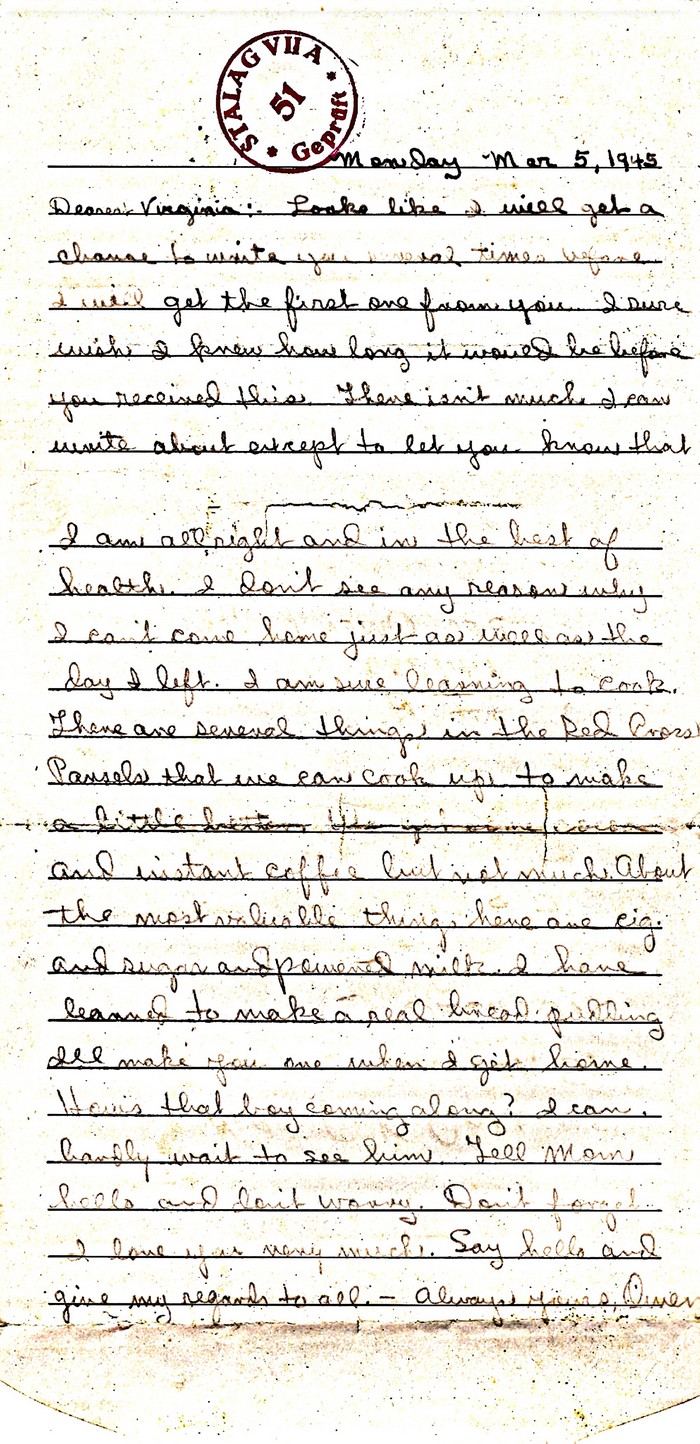 STALAG VIIA
51
Geprüft
Monday Mar 5, 1945
Dearest Virginia: Looks like I will get a
chance to write you several times before
I will get the first one from you. I sure
wish I knew how long it would be before
you received this. There isn't much I can
write about except to let you know that
I am all right and in the best of
health. I don't see any reason why
I can't come home just as well as the
day I left. I am sure learning to cook.
There are several things in the Red Cross
Parsels that we can cook up to make
a little better. We get some cocoa
and instant coffee but not much. About
the most valuable things here are cig.
and sugar and powered milk. I have
learned to make a real bread pudding
I'll make you one when I get home.
How's that boy coming along? I can
hardly wait to see him. Tell Mom
hello and don't worry. Don't forget
I love you very much. Say hello and
give my regards to all. – Always yours, Owen